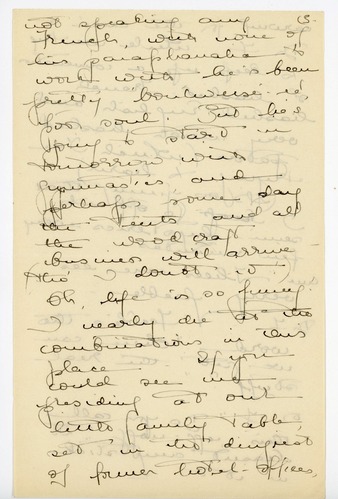 not speaking any 15-
French, with none of
his paraphanalia to
work with he's been
pretty
poor soul. But he's
going to start in
tomorrow with
gymnastics, and
perhaps some day
the tents and all
the wood craft
business will arrive
tho' I doubt it.
Oh, life is so funny.
I nearly die at the
combinations in this
place. If you
could see me
presiding at our
little family table,
set in the dingiest
of former hotel-offices,